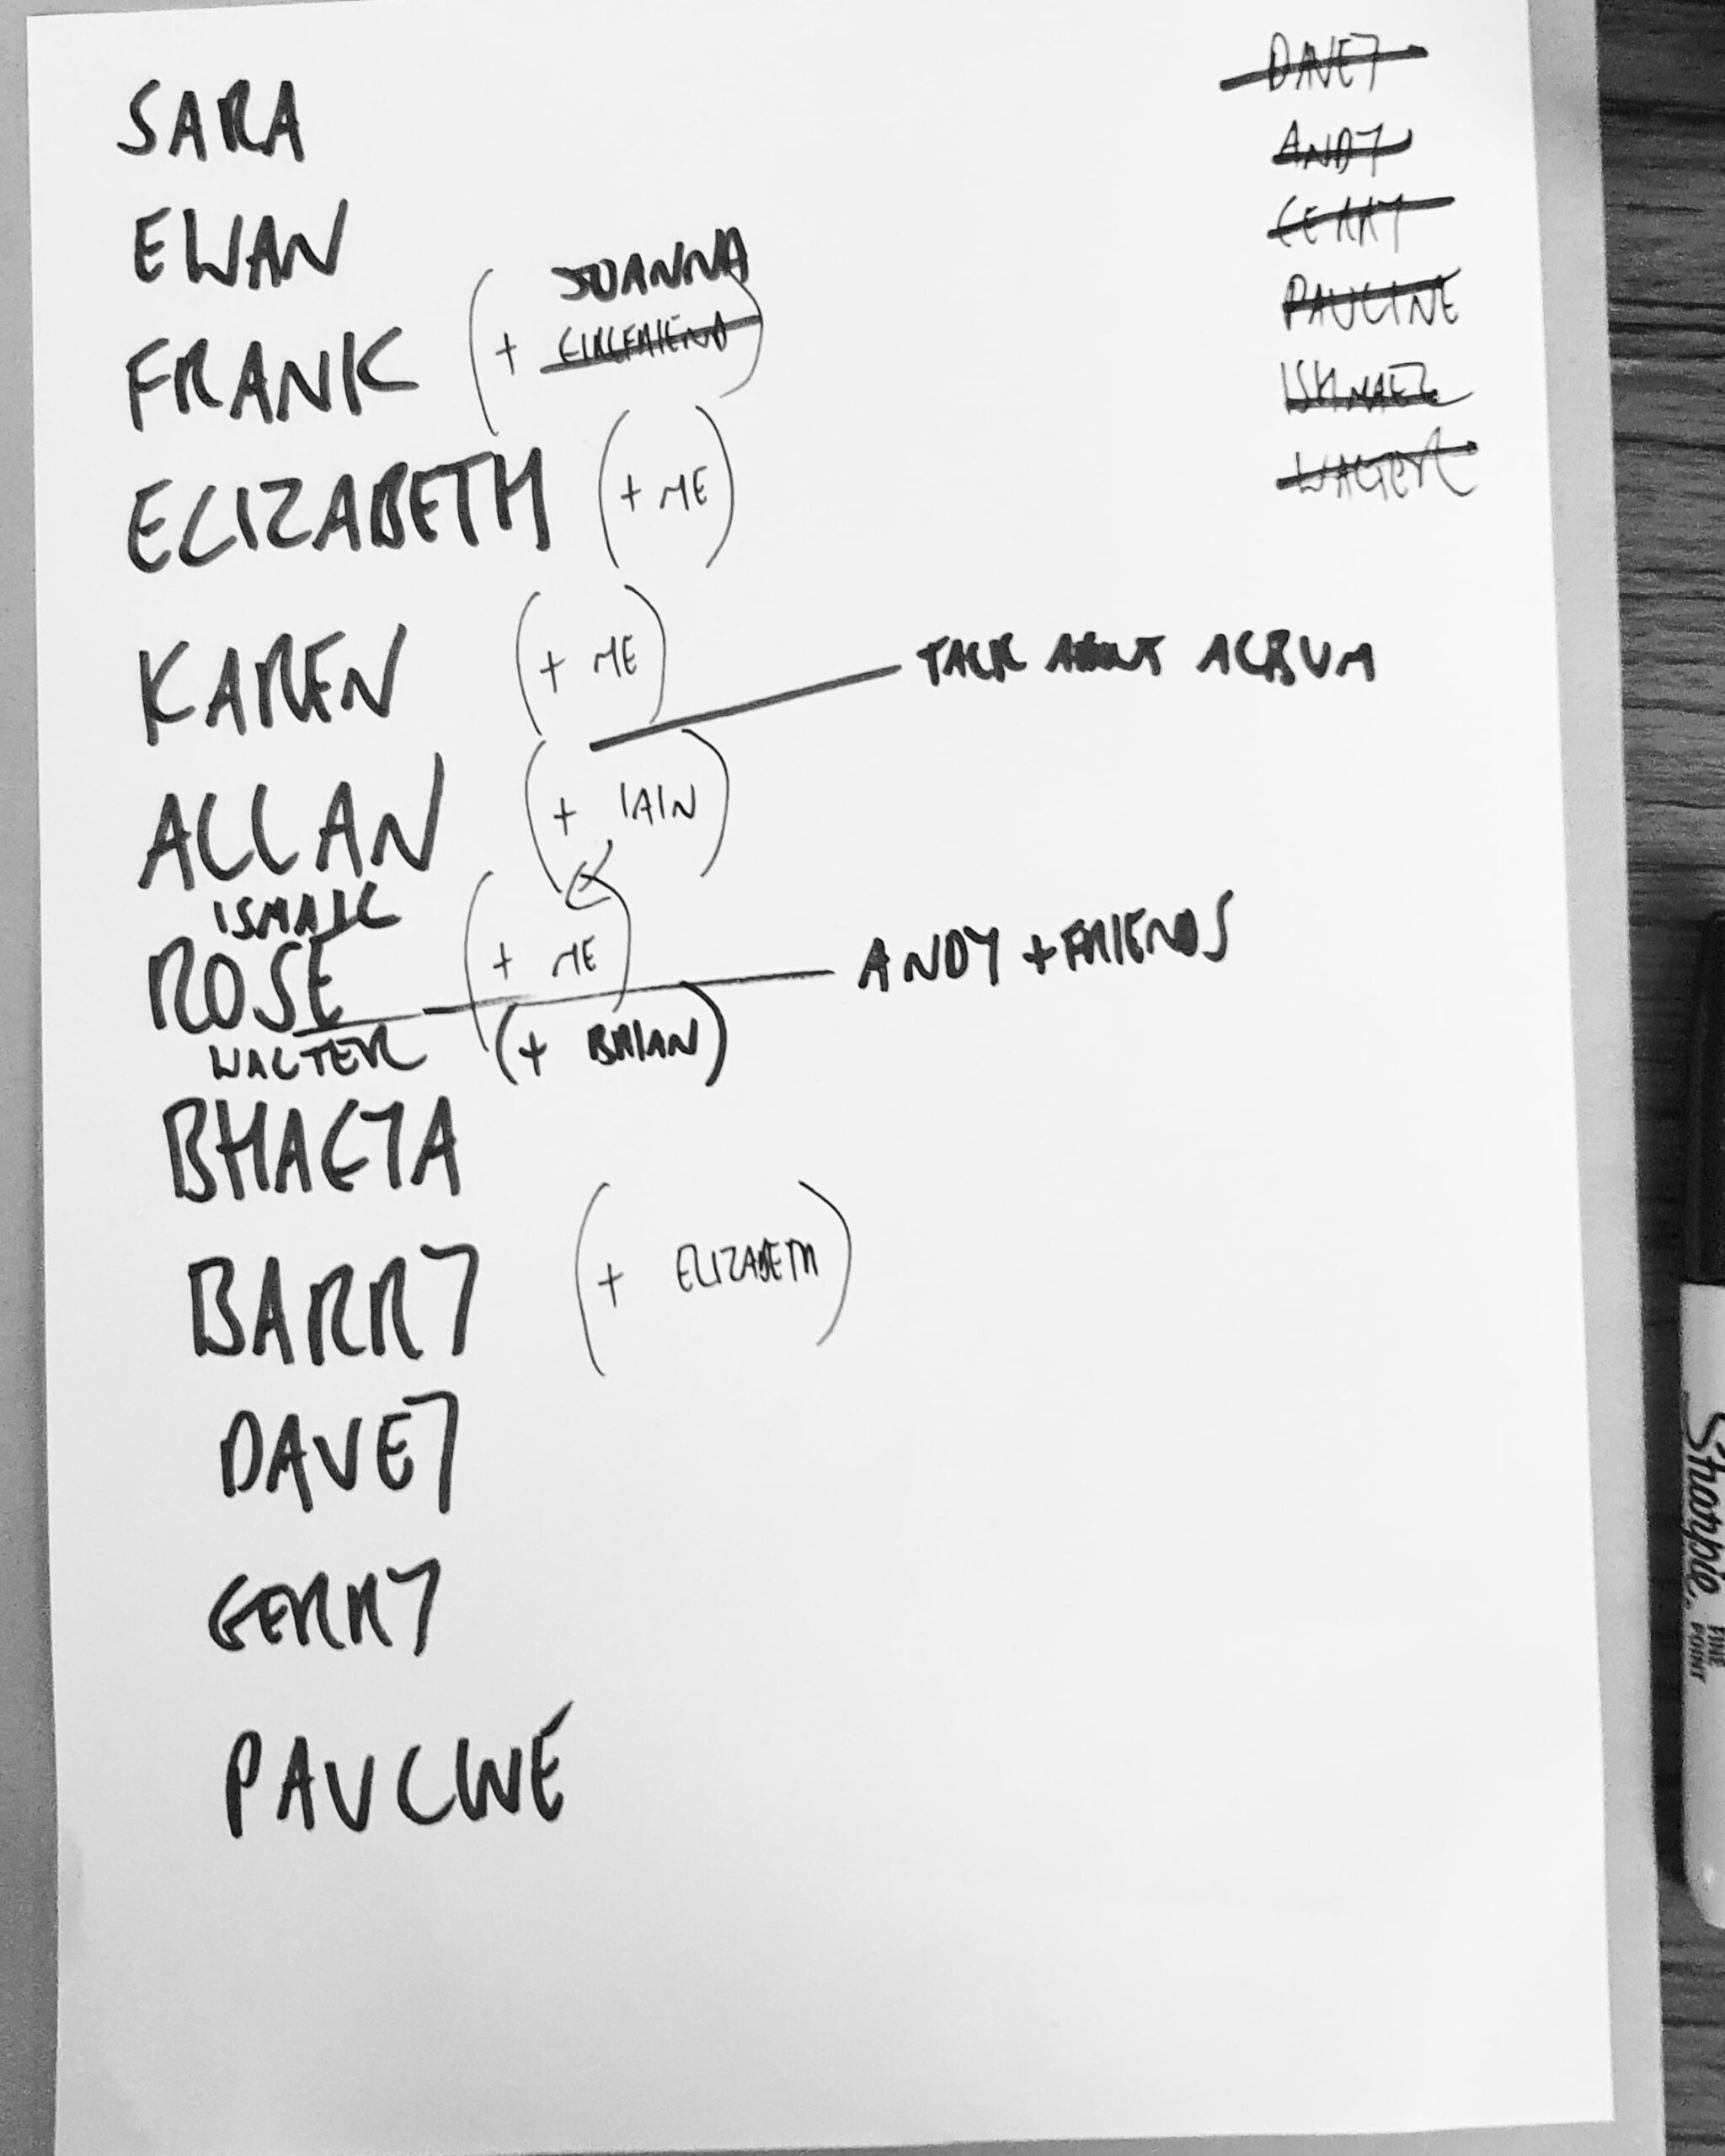 SARA
EWAN
FRANK (+ JOANNA GIRLFRIEND)
ELIZABETH (+ ME)
KAREN (+ ME)
TALK ABOUT ALBUM
ALLAN (+ IAIN)
ISMAIL
ROSE (+ ME)
ANDY + FRIENDS
WALTER (+ BRIAN)
BARRY (+ ELIZABETH)
DAVEY
GERRY
PAULINE
DAVEY
ANDY
GERRY
PAULINE
WALTER
Sharpie.
FINE
POINT